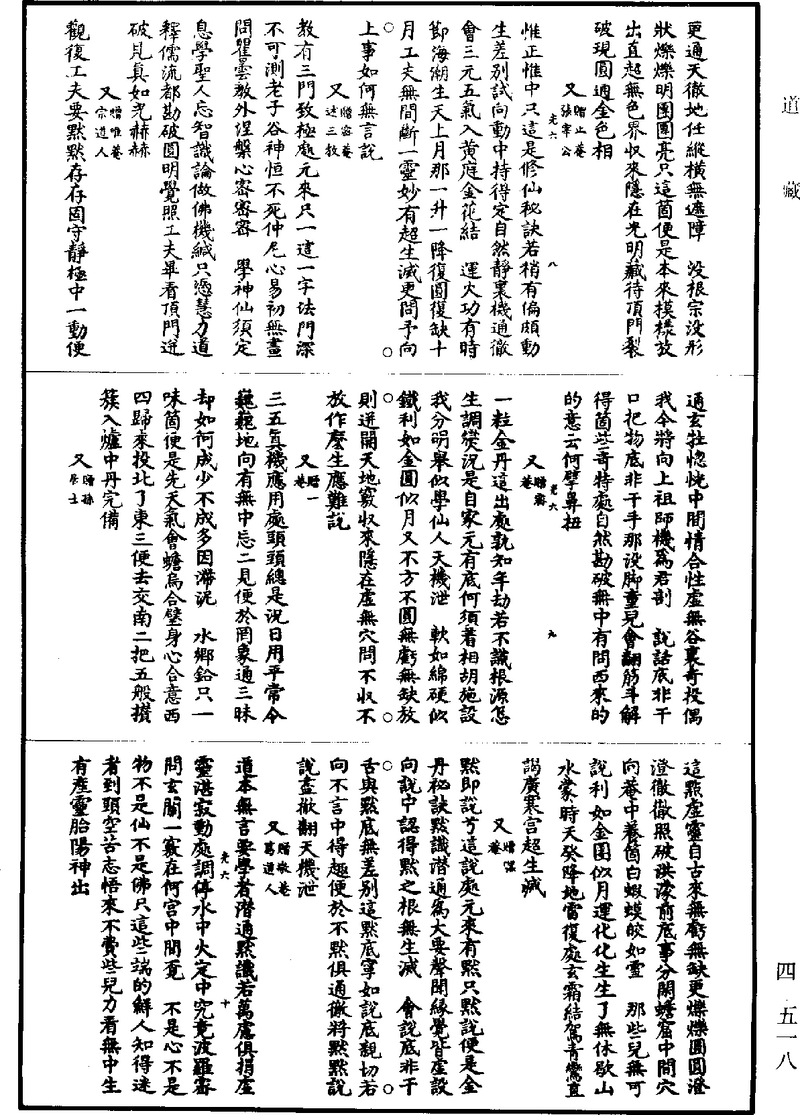 道藏
更通天徹地任縱橫無遮障　没根宗没形
狀爍爍明團團亮只這箇便是本來模樣放
出直超無色界收來隱在光明藏待頂門裂
破現圓通金色相
又贈止菴張宰公
光六　八
惟正惟中只這是修仙秘訣若稍有偏頗動
生差别試向動中持得定自然靜裏機通徹
會三元五氣入黄庭金花結　運火功有時
節海潮生天上月那一升一降復圓復缺十
月工夫無間斷一靈妙有超生滅更問予向
上事如何無言說
又贈密菴述三教
教有三門致極處元來只一這一字法門深
不可測老子谷神恒不死仲尼心易初無畫
問瞿曇教外涅槃心密密密　學神仙須定
息學聖人忘智識論做佛機緘只憑慧力道
釋儒流都勘破圓明覺照工夫畢看頂門迸
破見真如光赫赫
又贈唯菴宗道人
觀復工夫要默默存存固守靜極中一動便
通玄牡惚恍中間情合性虚無谷裏奇投偶
我今將向上祖師機爲君剖　說話底非干
口把物底非干手那没脚童兒會翻筋斗解
得箇些奇特處自然勘破無中有問西來的
的意云何擘鼻扭
又贈密菴
光六　九
一粒金丹這出處孰知年劫若不識根源怎
生調燮況是自家元有底何須著相胡施設
我分明舉似學仙人天機泄　軟如綿硬似
鐵利如金圓似月又不方不圓無虧無缺放
則迸開天地竅收來隱在虚無穴問不收不
放作麽生應難說
又贈一菴
三五真機應用處頭頭總是況日用平常令
巍巍地向有無中忘二見便於罔象通三昧
却如何成少不成多因滯泥　水鄉鉛只一
味箇便是先天氣會蟾烏合璧身心合意西
四歸來投北了東三便去交南二把五般攢
簇入爐中丹完備
又贈孫居士
這點虚靈自古來無虧無缺更爍爍圓圓澄
澄徹徹照破洪濛前底事分開蟾窟中間穴
向菴中養箇白蝦蟆皎如雪　那些兒無可
說利如金圓似月運化化生生了無休歇山
水蒙時天癸降地雷復處玄霜結駕青鸞直
謁廣寒宫超生滅
又贈菴
默即說兮這說處元來有默只默說便是金
丹秘訣默識潛通爲大要聲聞緣覺皆虚設
向說中認得默之根無生滅　會說底非干
舌與默底無差别這默底寧如說底親切若
向不言中得趣便於不默俱通徹將默默說
說盡掀翻天機泄
又贈敬菴葛道人
光六　十
道本無言要學者潛通默識若萬慮俱捐虚
靈湛寂動處調停水中火定中究竟波羅密
問玄關一竅在何宫中間覓　不是心不是
物不是仙不是佛只這些端的鮮人知得迷
者到頭空苦志悟來不費些兒力看無中生
有産靈胎陽神出
四　五一八